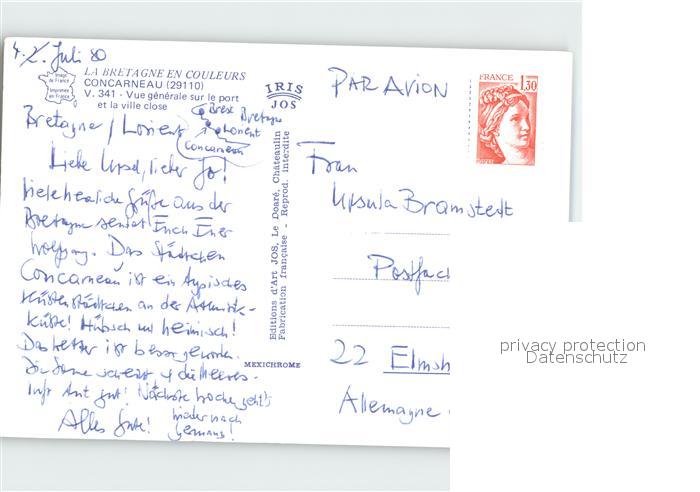 4. Juli 80
Image de France
Imprimée en France
LA BRETAGNE EN COULEURS
CONCARNEAU (29110)
V. 341 - Vue générale sur le port
et la ville close
IRIS
JOS
Brest Bretagne
Lorient
Concarneau
Bretagne / Lorient
Liebe Ursel, lieber Jo!
viele herzliche Grüße aus der
Bretagne sendet Euch Euer
Wolfgang. Das Städtchen
Concarneau ist ein typisches
Küstenstädtchen an der Atlantik-
küste! Hübsch und heimisch!
Das Wetter ist besser geworden.
Die Sonne scheint + die Meeres-
luft tut gut! Nächste Woche geht's
wieder nach
Alles Gute! Germany!
Editions d'Art JOS, Le Doaré, Châteaulin
Fabrication française - Reprod. interdite
MEXICHROME
PAR AVION
FRANCE
1,30
POSTES
Frau
Ursula Bramstedt
Postfach
22 Elmsh
Allemagne
privacy protection
Datenschutz